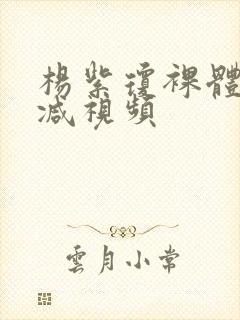 楊紫瓊裸體
減視頻
雲月小常